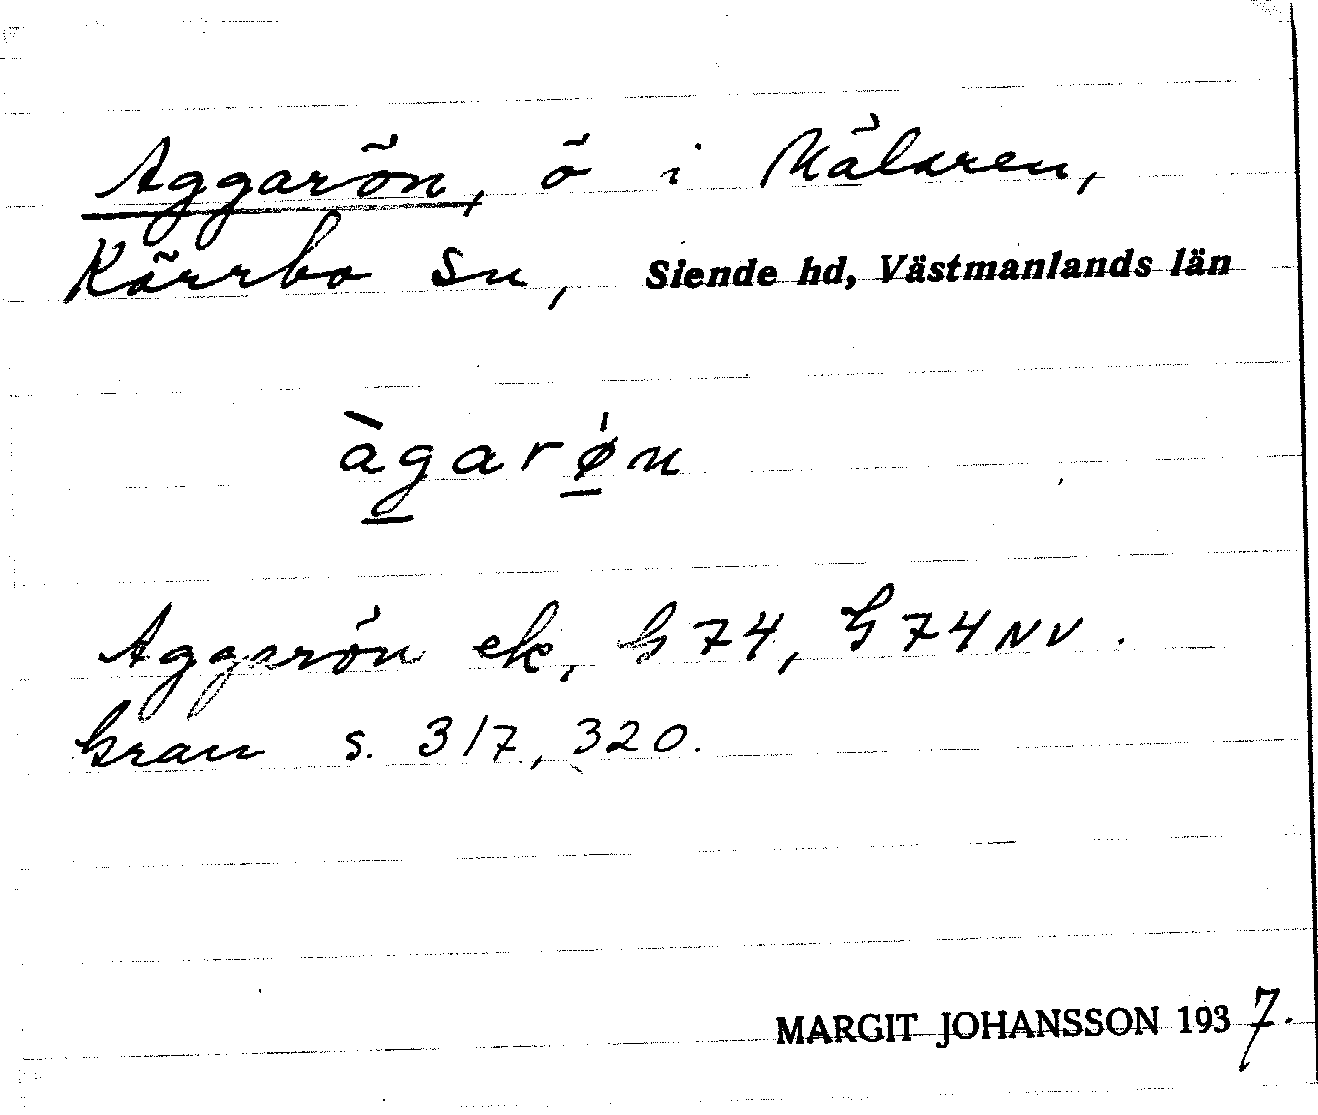 Aggarön, ö i Mälaren,
Kärrbo sn, Siende hd, Västmanlands län
àgarǿn
Aggarön ek, G 74, G 74 NV.
Gran s. 317, 320.
MARGIT JOHANSSON 1937.